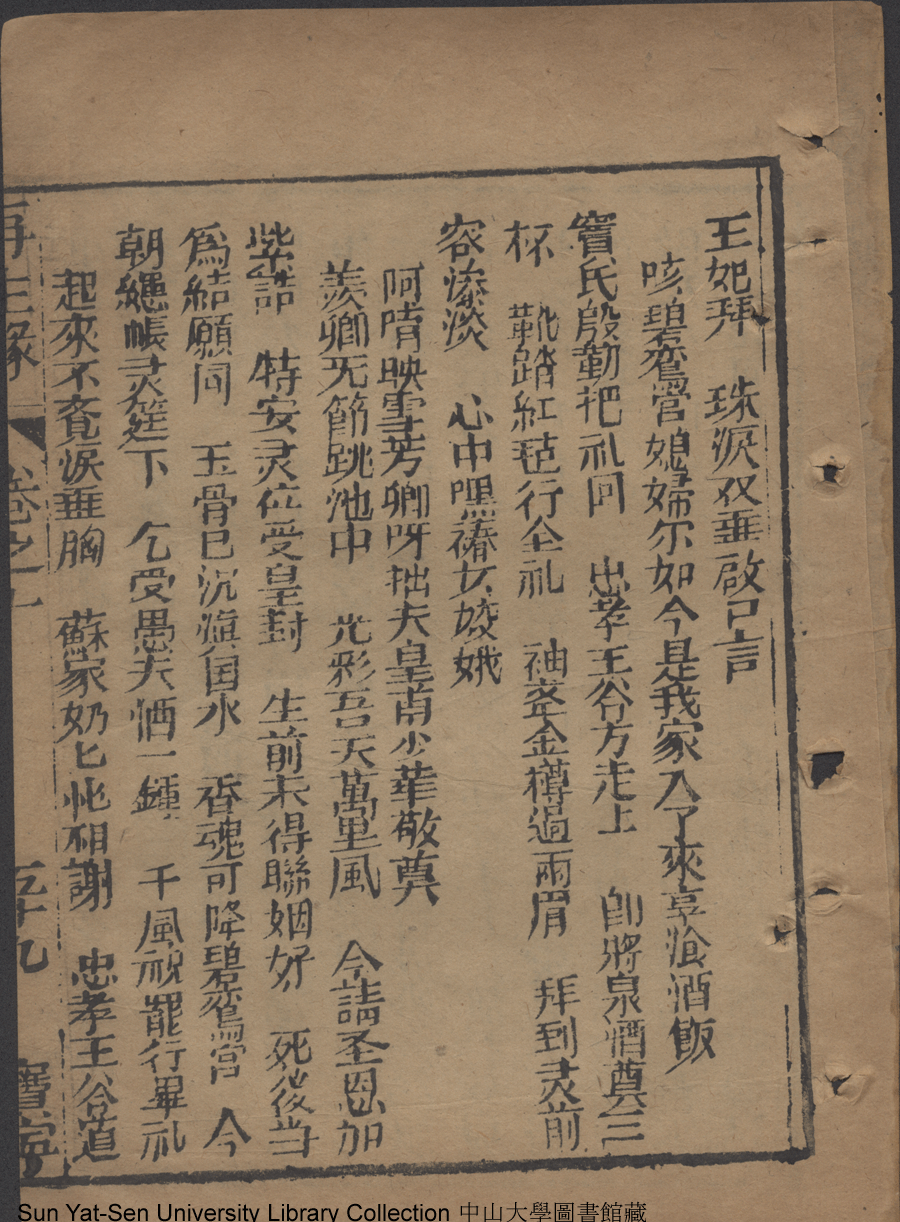 王妃拜　珠淚双垂啟口言
咳碧鸞宮媳婦尔如今是我家人了來享飱酒飯
竇氏殷勤把礼回　忠孝王爷方走上　即將泉酒奠三
杯　靴踏紅毡行全礼　袖笼金樽過兩眉　拜到灵前
容滲淡　心中嘿禱女姣娥
呵隋映雪芳卿呀拙夫皇甫少華敬奠
羡卿死節跳池中　光彩吾天萬里風　今請圣恩加
紫誥　特安灵位受皇封　生前未得聯姻好　死後当
為結願同　玉骨已沉滇国水　香魂可降碧鸞宮　今
朝繐帳灵筵下　乞受愚夫洒一鍾　千風祝罷行畢礼
起來不竟淚垂胸　蘇家奶匕忙相謝　忠孝王爷道
再生緣　卷之十　五十九